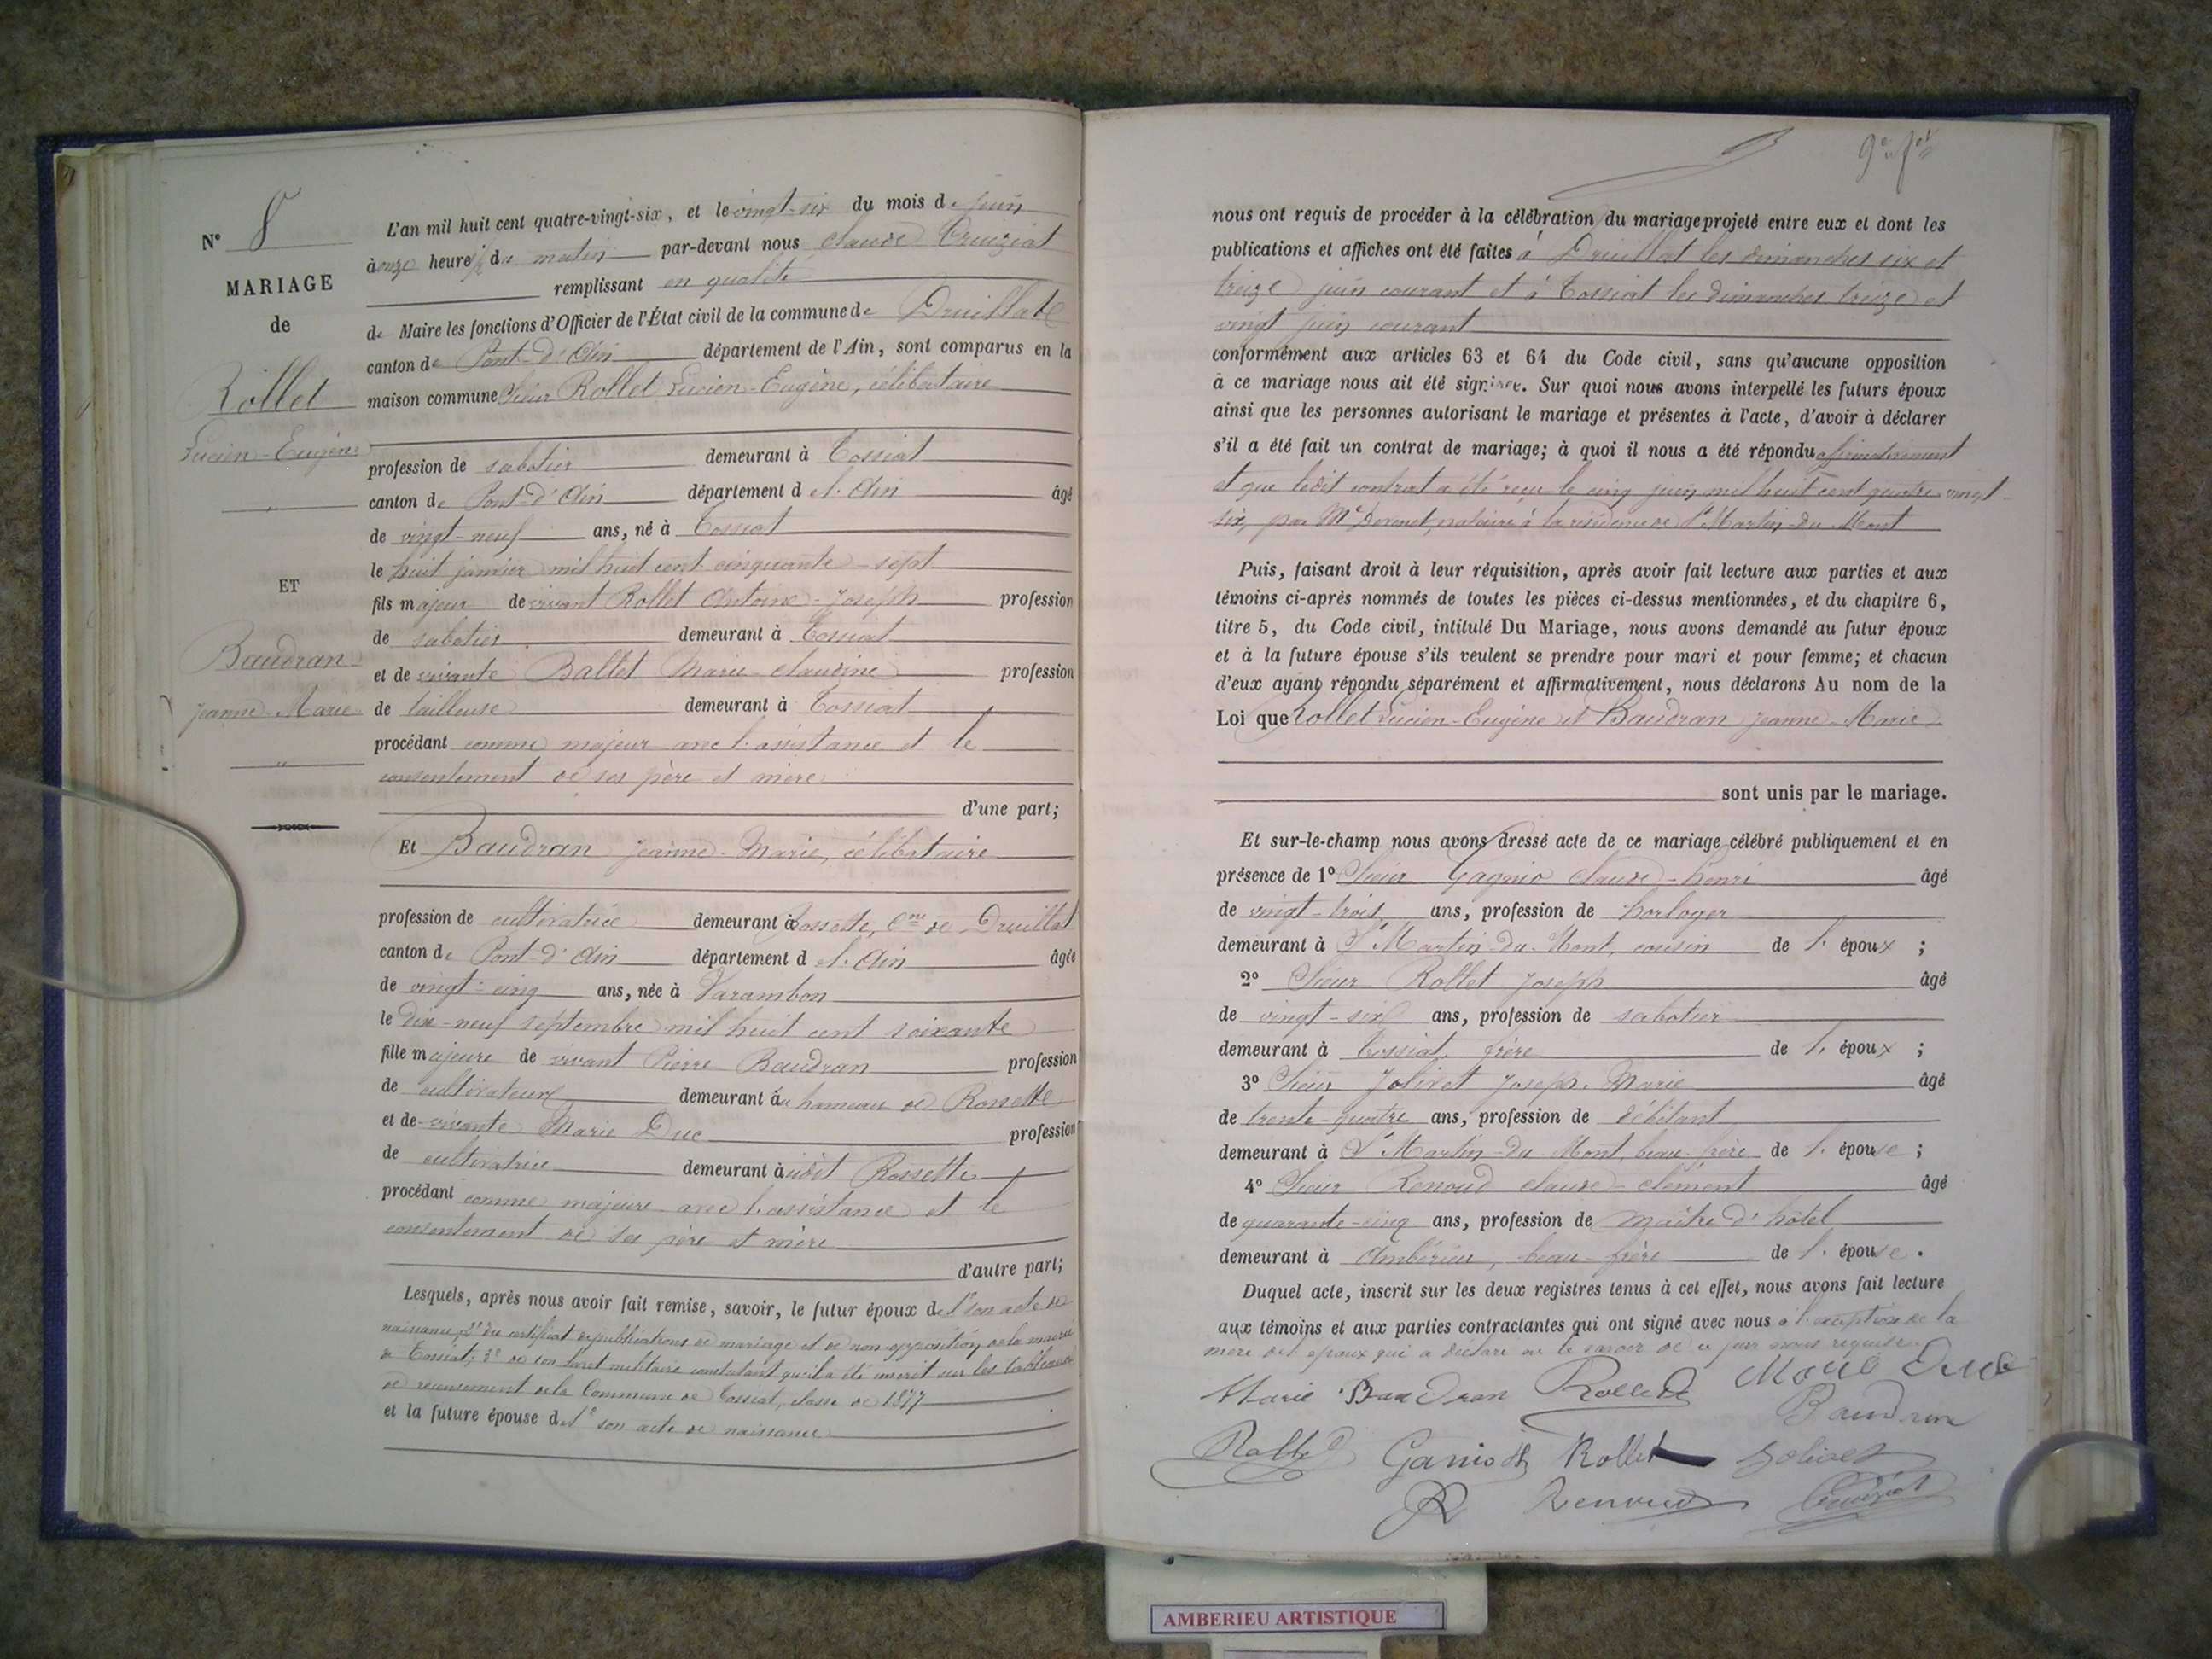 N° 8
MARIAGE
de
Rollet
Lucien-Eugène
ET
Baudran
Jeanne-Marie
L'an mil huit cent quatre-vingt-six, et le vingt-six du mois de juin
à onze heures du matin par-devant nous Claude Cruiziat
remplissant en qualité
de Maire les fonctions d'Officier de l'État civil de la commune de Druillat
canton de Pont-d'Ain département de l'Ain, sont comparus en la
maison commune Sieur Rollet Lucien-Eugène, célibataire
profession de sabotier demeurant à Tossiat
canton de Pont-d'Ain département de l'Ain âgé
de vingt-neuf ans, né à Tossiat
le huit janvier mil huit cent cinquante-sept
fils majeur de vivant Rollet Antoine-Joseph profession
de sabotier demeurant à Tossiat
et de vivante Ballet Marie Claudine profession
de tailleuse demeurant à Tossiat
procédant comme majeur avec l'assistance et le
consentement de ses père et mère
d'une part;
Et Baudran Jeanne-Marie, célibataire
profession de cultivatrice demeurant à Rossette, Cne de Druillat
canton de Pont-d'Ain département de l'Ain âgée
de vingt-cinq ans, née à Varambon
le dix-neuf septembre mil huit cent soixante
fille majeure de vivant Pierre Baudran profession
de cultivateur demeurant au hameau de Rossette
et de vivante Marie Duc profession
de cultivatrice demeurant à udit Rossette
procédant comme majeure avec l'assistance et le
consentement de ses père et mère
d'autre part;
Lesquels, après nous avoir fait remise, savoir, le futur époux de 1° son acte de
naissance, 2° du certificat de publications de mariage et de non opposition de la mairie
de Tossiat; 3° de son livret militaire constatant qu'il a été inscrit sur les tableaux
de recensement de la Commune de Tossiat, classe de 1877
et la future épouse de 1° son acte de naissance
nous ont requis de procéder à la célébration du mariage projeté entre eux et dont les
publications et affiches ont été faites à Druillat les dimanches six et
treize juin courant et à Tossiat les dimanches treize et
vingt juin courant
conformément aux articles 63 et 64 du Code civil, sans qu'aucune opposition
à ce mariage nous ait été signifiée. Sur quoi nous avons interpellé les futurs époux
ainsi que les personnes autorisant le mariage et présentes à l'acte, d'avoir à déclarer
s'il a été fait un contrat de mariage; à quoi il nous a été répondu affirmativement
et que ledit contrat a été reçu le cinq juin mil huit cent quatre-vingt-
six, par Me notaire à la résidence de St Martin-du-Mont
Puis, faisant droit à leur réquisition, après avoir fait lecture aux parties et aux
témoins ci-après nommés de toutes les pièces ci-dessus mentionnées, et du chapitre 6,
titre 5, du Code civil, intitulé Du Mariage, nous avons demandé au futur époux
et à la future épouse s'ils veulent se prendre pour mari et pour femme; et chacun
d'eux ayant répondu séparément et affirmativement, nous déclarons Au nom de la
Loi que Rollet Lucien-Eugène et Baudran Jeanne-Marie
sont unis par le mariage.
Et sur-le-champ nous avons dressé acte de ce mariage célébré publiquement et en
présence de 1° Sieur Gagnio Claude-Henri âgé
de vingt-trois ans, profession de horloger
demeurant à St Martin-du-Mont, cousin de l'époux;
2° Sieur Rollet Joseph âgé
de vingt-six ans, profession de sabotier
demeurant à Tossiat, frère de l'époux;
3° Sieur Jolivet Joseph-Marie âgé
de trente-quatre ans, profession de débitant
demeurant à St Martin-du-Mont, beau-frère de l'épouse;
4° Sieur Renoud Claude-Clément âgé
de quarante-cinq ans, profession de maître d'hôtel
demeurant à Ambérieu, beau-frère de l'épouse.
Duquel acte, inscrit sur les deux registres tenus à cet effet, nous avons fait lecture
aux témoins et aux parties contractantes qui ont signé avec nous à l'exception de la
mère de l'époux qui a déclaré ne le savoir de ce par nous requise.
Marie Baudran Rollet Marie Duc
Baudran
Rollet Ganio Rollet Jolivet
Renoud Cruiziat
AMBERIEU ARTISTIQUE